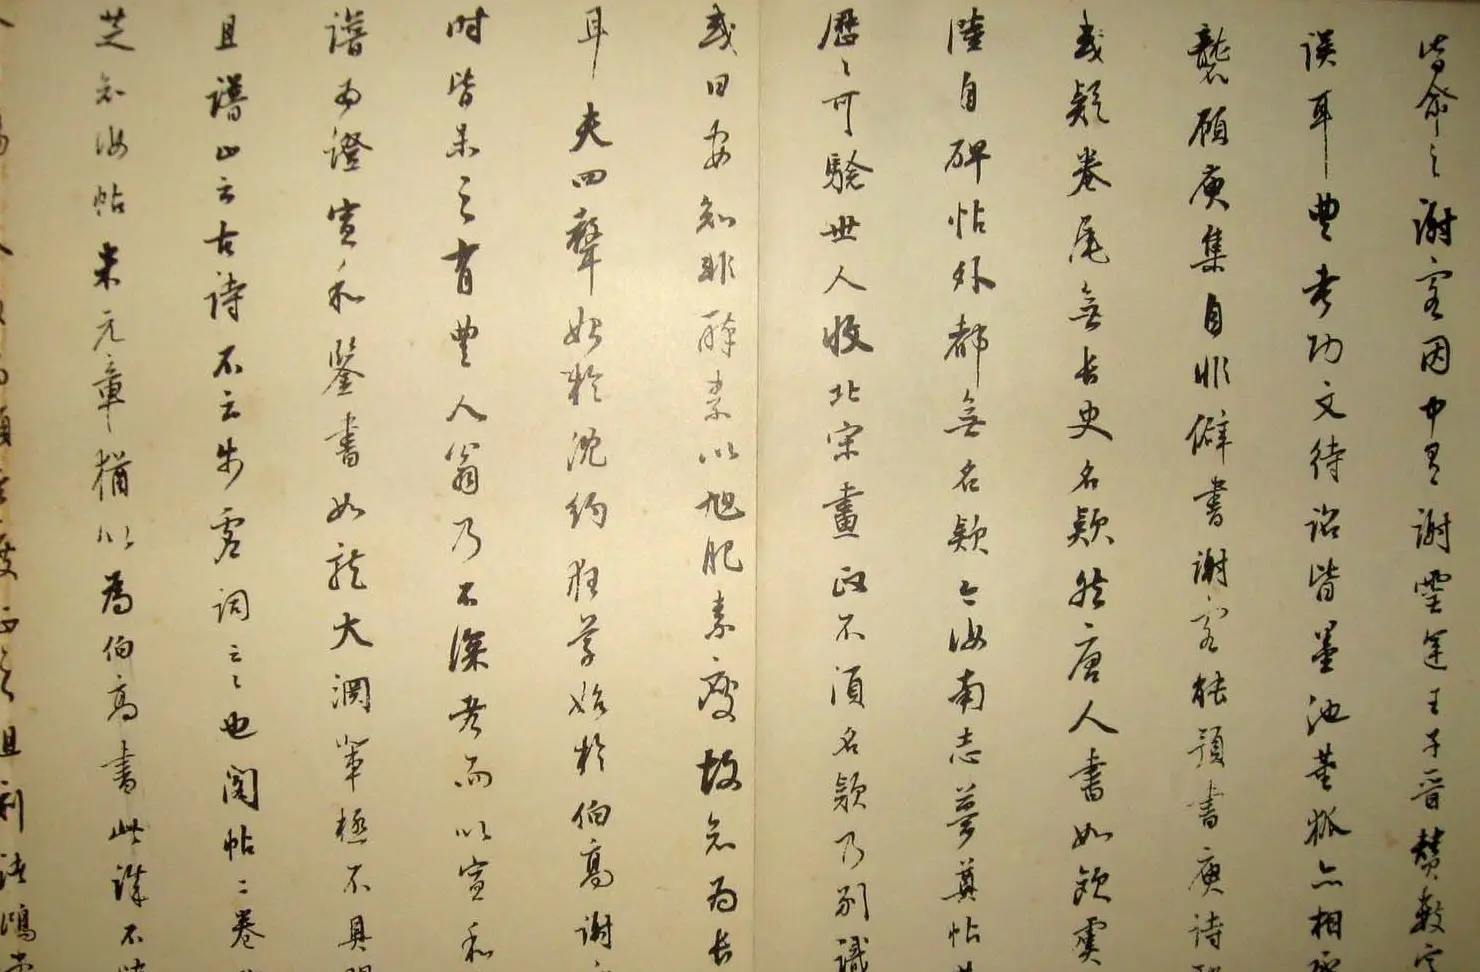 皆祭之謝客因中有謝靈運王子晉贊數字
誤耳豐考功文待詔皆墨池董狐亦相承
襲顧庾集自非僻書謝客能預書庾詩
或疑卷尾無長史名款然唐人書如歐虞
陸自碑帖外都無名款今汝南志夢奠帖
歷歷可驗世人收北宋畫政不須名款乃別識
或曰安知非醉素以旭肥素瘦故知為長
耳夫四聲始於沈約狂草始於伯高謝
時皆未之有豐人翁乃不深考而以宣和
譜為證宣和鑒書如龍大淵輩極不具
且譜亦云古詩不云步虛詞云云也閣帖二卷
芝知汝帖米元章猶以為伯高書此誰不